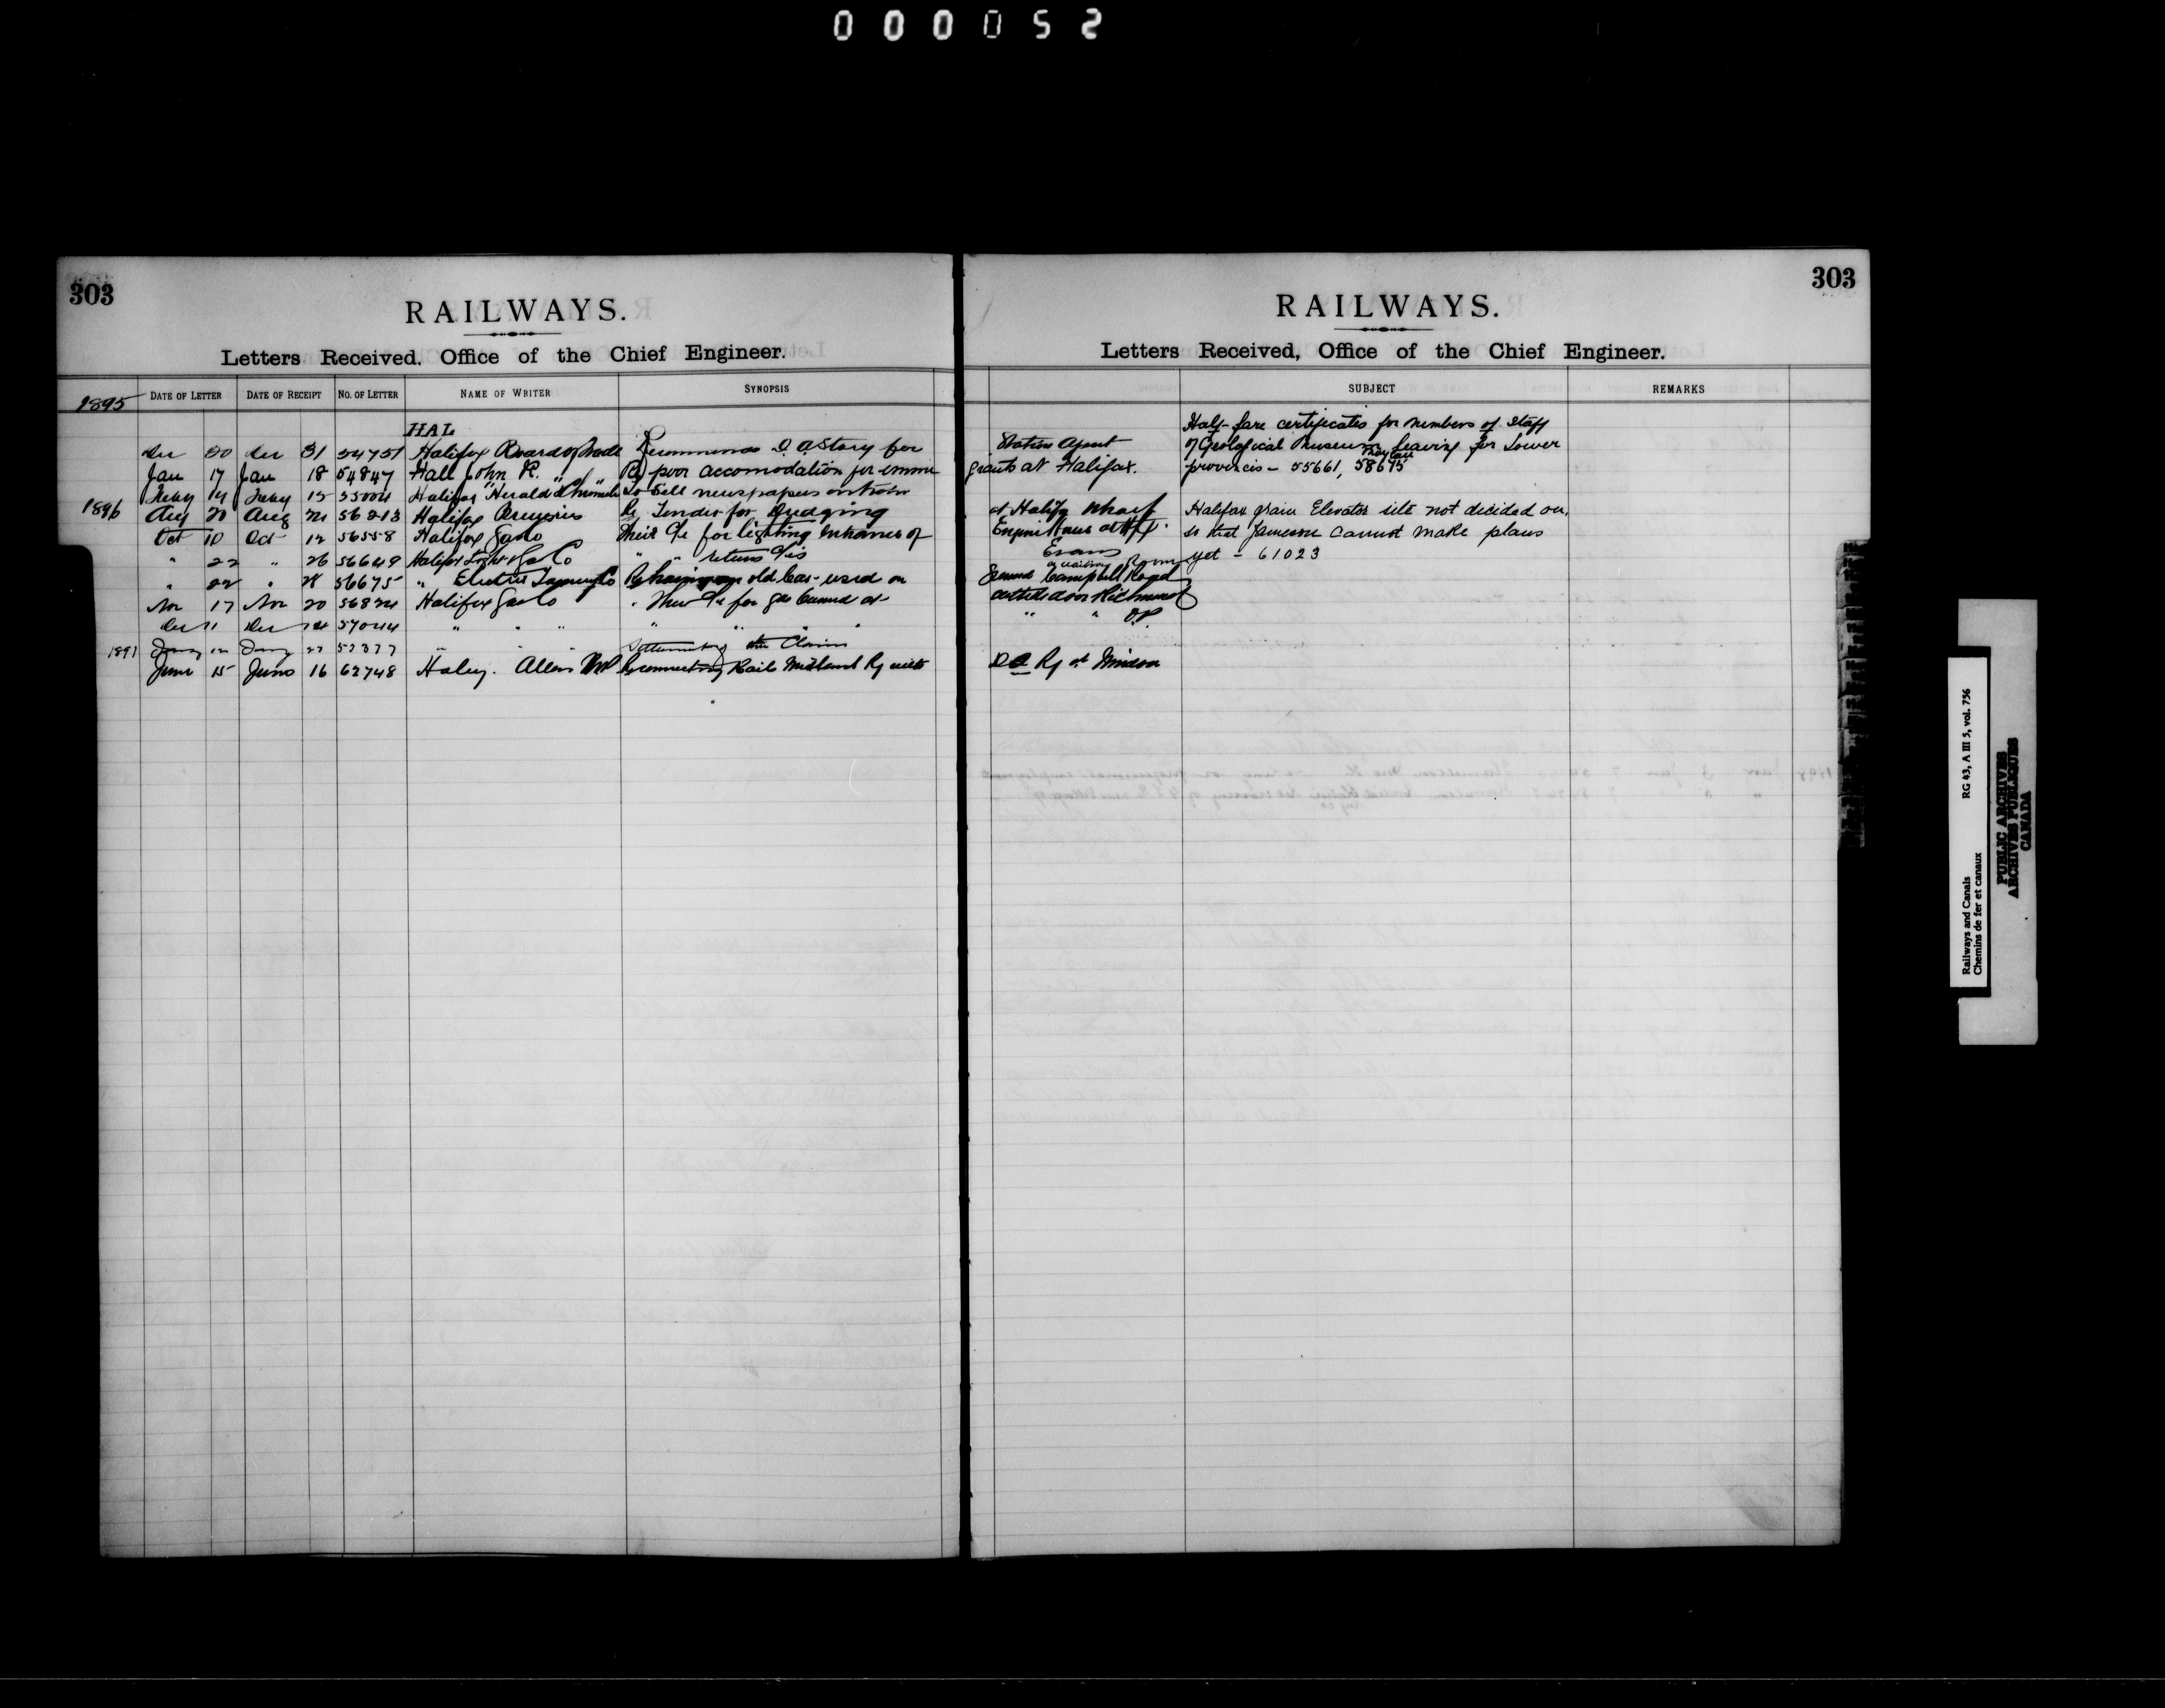 000052
303
RAILWAYS.
Letters Received, Office of the Chief Engineer.
1895 DATE OF LETTER DATE OF RECEIPT NO. OF LETTER NAME OF WRITER SYNOPSIS
HAL
Dec 30 Dec 31 54751 Halifax Board of Trade Recommends D. A. Story for
Jan 17 Jan 18 54847 Hall John R. Re poor accomodation for immi
Feby 14 Feby 15 55004 Halifax "Herald" & " " To sell newspapers on train
1896 Aug 20 Aug 24 56213 Halifax Re Tender for Dredging
Oct 10 Oct 12 56558 Halifax Gas Co Their a/c for lighting entrance of
" 22 " 26 56649 Halifax Light & Gas Co " " return
" 22 " 28 56675 " Electric Co Re old Car used on
Nov 17 Nov 20 56824 Halifax Gas Co " Their a/c for gas burned at
Dec 11 Dec 14 57044 " " " " " " "
1897 Jany 12 Jany 27 57377 " " " Claim
June 15 June 16 62748 Haley. Allen MP Re connecting Rails Midland Ry with
303
RAILWAYS.
Letters Received, Office of the Chief Engineer.
SUBJECT REMARKS
Half-fare certificates for members of Staff
Station Agent of Geological Museum leaving for Lower
grants at Halifax. provinces - 55661, 58675
at Halifax Wharf Halifax grain Elevator site not decided on,
Engine House at Hfx. so that Jameson cannot make plans
yet - 61023
Campbell Road
outside door Richmond
" "
DA Ry at Windsor
Railways and Canals RG 43, A III 5, vol. 756
Chemins de fer et canaux
PUBLIC ARCHIVES
ARCHIVES PUBLIQUES
CANADA